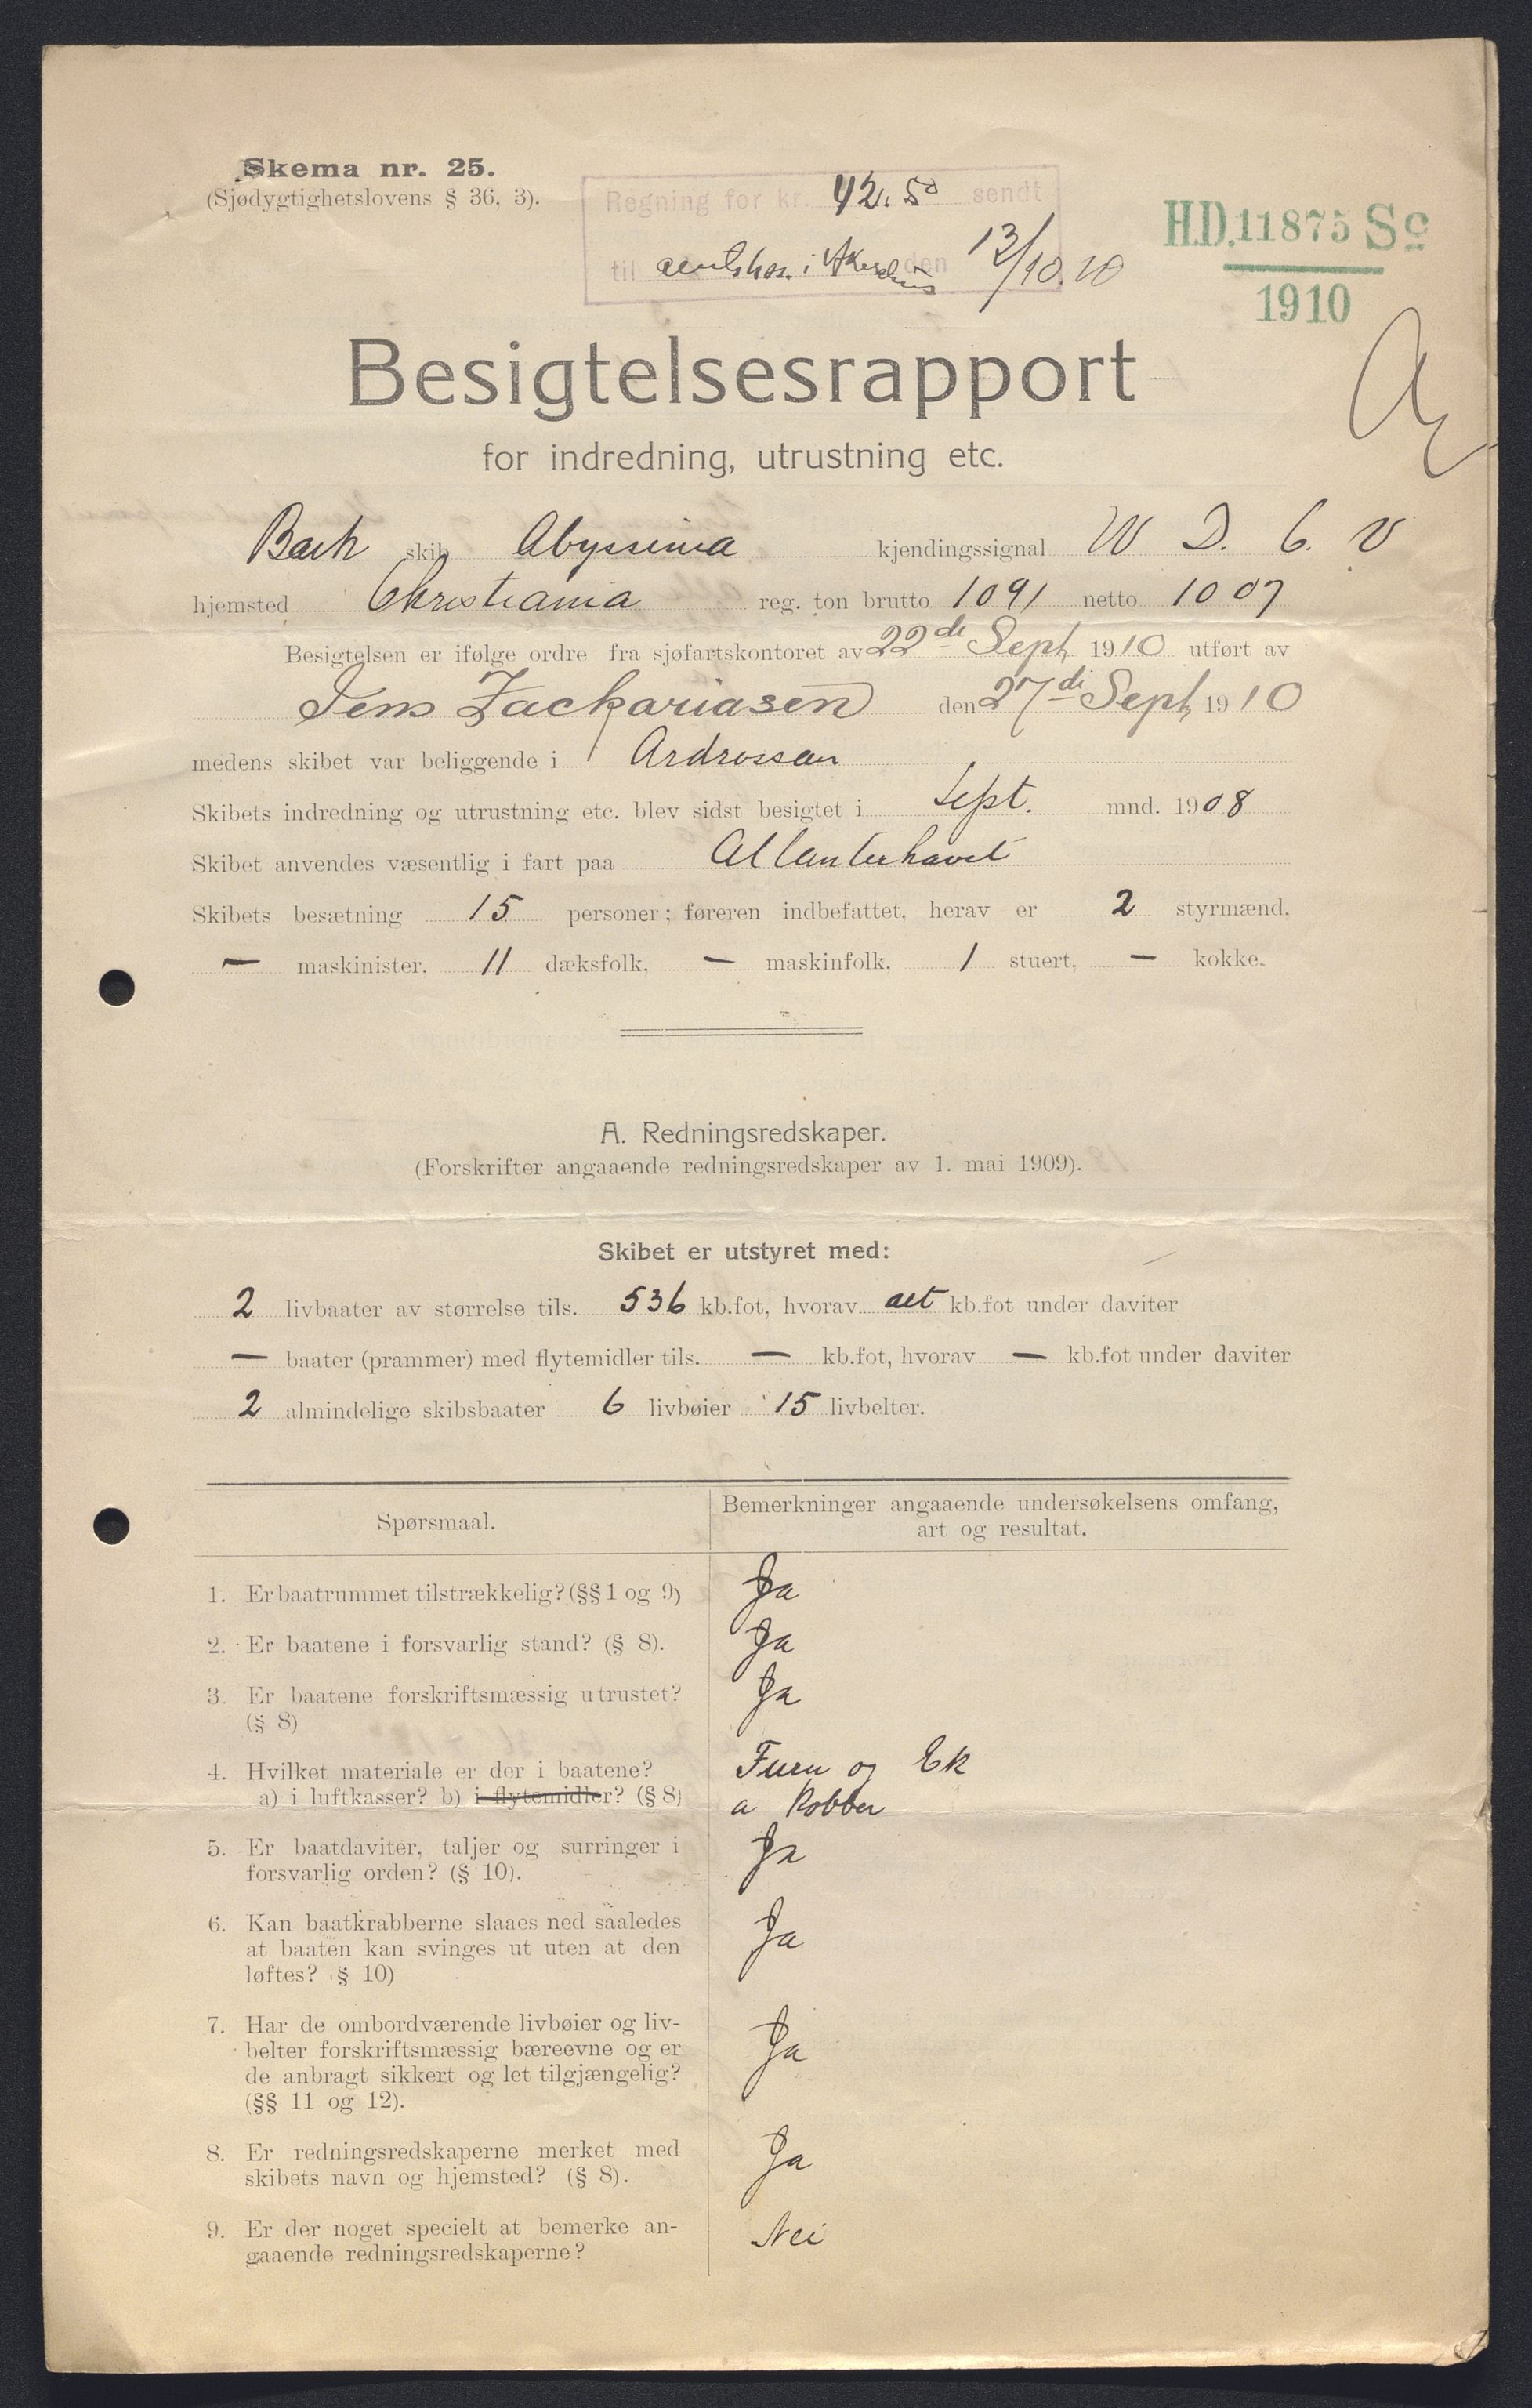 Skema nr. 25.
(Sjødygtighetslovens § 36, 3).
Regning for kr. 42.50 sendt
til amtskas. i Akershus den 13/10.10
H.D. 11875 Sc
1910
Besigtelsesrapport
for indredning, utrustning etc.
Bark skib Abyssinia kjendingssignal W D. G. V
hjemsted Christiania reg. ton brutto 1091 netto 1007
Besigtelsen er ifølge ordre fra sjøfartskontoret av 22de Sept 1910 utført av
Jens Zackariasen den 27de Sept 1910
medens skibet var beliggende i Ardrossan
Skibets indredning og utrustning etc. blev sidst besigtet i Sept. mnd. 1908
Skibet anvendes væsentlig i fart paa Atlanterhavet
Skibets besætning 15 personer; føreren indbefattet, herav er 2 styrmænd,
— maskinister, 11 dæksfolk, — maskinfolk, 1 stuert, — kokke.
A. Redningsredskaper.
(Forskrifter angaaende redningsredskaper av 1. mai 1909).
Skibet er utstyret med:
2 livbaater av størrelse tils. 536 kb.fot, hvorav alt kb.fot under daviter
— baater (prammer) med flytemidler tils. — kb.fot, hvorav — kb.fot under daviter
2 almindelige skibsbaater 6 livbøier 15 livbelter.
Spørsmaal.
Bemerkninger angaaende undersøkelsens omfang,
art og resultat.
1. Er baatrummet tilstrækkelig? (§§ 1 og 9) Ja
2. Er baatene i forsvarlig stand? (§ 8). Ja
3. Er baatene forskriftsmæssig utrustet? Ja
(§ 8)
4. Hvilket materiale er der i baatene? Furu og Ek
a) i luftkasser? b) i flytemidler? (§ 8) a Kobber
5. Er baatdaviter, taljer og surringer i Ja
forsvarlig orden? (§ 10).
6. Kan baatkrabberne slaaes ned saaledes
at baaten kan svinges ut uten at den Ja
løftes? (§ 10)
7. Har de ombordværende livbøier og liv-
belter forskriftsmæssig bæreevne og er Ja
de anbragt sikkert og let tilgjængelig?
(§§ 11 og 12).
8. Er redningsredskaperne merket med Ja
skibets navn og hjemsted? (§ 8).
9. Er der noget specielt at bemerke an- Nei
gaaende redningsredskaperne?